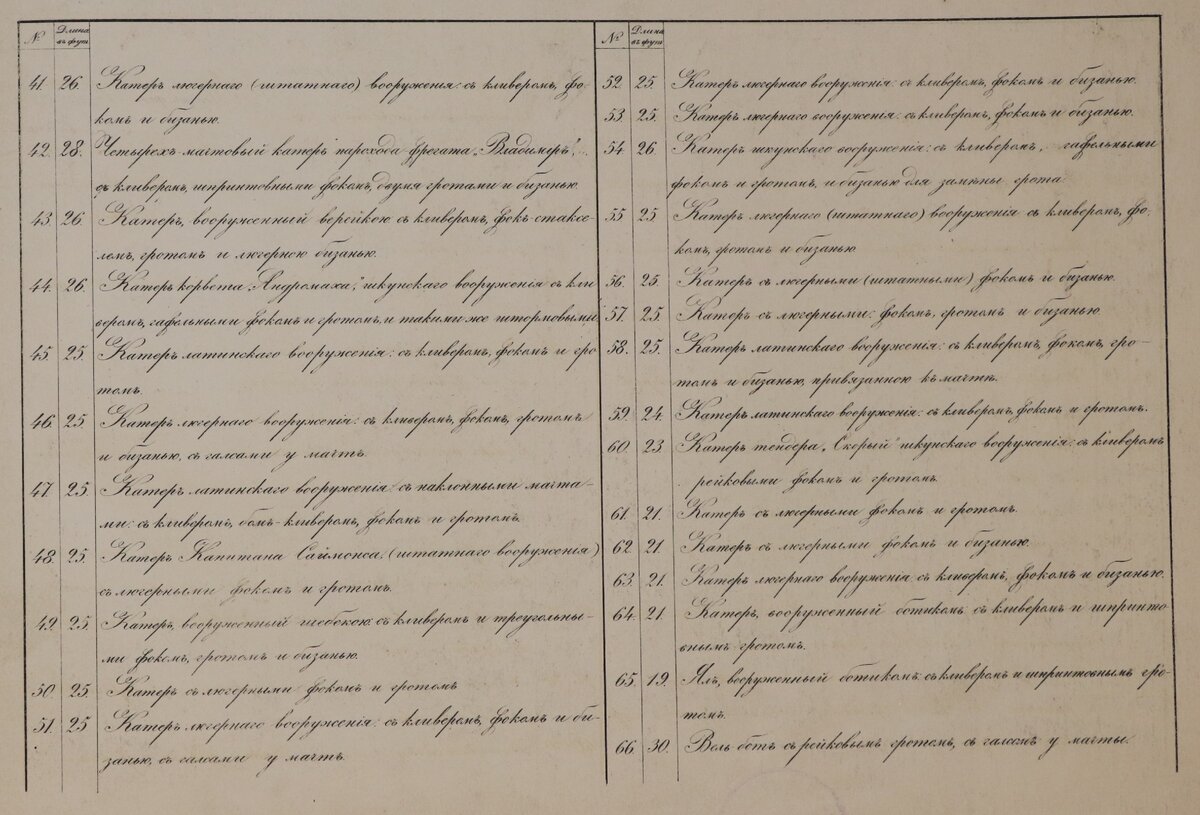 № Длина въ фут.
41. 26. Катеръ люгернаго (штатнаго) вооруженія: съ кливеромъ, фо-
комъ и бизанью.
42. 28. Четырехъ-мачтовый катеръ парохода фрегата „Владимеръ",
съ кливеромъ, шпринтовными фокомъ, двумя гротами и бизанью.
43. 26. Катеръ, вооруженный верейкою съ кливеромъ, фокъ стаксе-
лемъ, гротомъ и люгерною бизанью.
44. 26. Катеръ корвета „Андромаха", шкунскаго вооруженія съ кли
веромъ, гафельными фокомъ и гротомъ и такими же штормовыми
45. 25. Катеръ латинскаго вооруженія: съ кливеромъ, фокомъ и гро
томъ.
46. 25 Катеръ люгернаго вооруженія: съ кливеромъ, фокомъ, гротомъ
и бизанью, съ галсами у мачтъ.
47 25. Катеръ латинскаго вооруженія: съ наклонными мачта-
ми: съ кливеромъ, бомъ-кливеромъ, фокомъ и гротомъ.
48. 25. Катеръ Капитана Саймонса, (штатнаго вооруженія)
съ люгерными фокомъ и гротомъ.
49. 25. Катеръ, вооруженный шебекою: съ кливеромъ и треугольны-
ми фокомъ, гротомъ и бизанью.
50. 25. Катеръ съ люгерными фокомъ и гротомъ
51. 25 Катеръ люгернаго вооруженія: съ кливеромъ, фокомъ и би-
занью, съ галсами у мачтъ.
№ Длина въ фут
52 25. Катеръ люгернаго вооруженія: съ кливеромъ, фокомъ и бизанью.
53. 25. Катеръ люгернаго вооруженія: съ кливеромъ, фокомъ и бизанью.
54 26. Катеръ шкунскаго вооруженія: съ кливеромъ, гафельными
фокомъ и гротомъ, и бизанью для замѣны грота
55 25 Катеръ люгернаго (штатнаго) вооруженія съ кливеромъ, фо-
комъ, гротомъ и бизанью
56. 25. Катеръ съ люгерными (штатными) фокомъ и бизанью.
57. 25. Катеръ съ люгерными: фокомъ, гротомъ и бизанью
58. 25. Катеръ латинскаго вооруженія: съ кливеромъ, фокомъ, гро-
томъ и бизанью, привязанною къ мачтѣ.
59. 24. Катеръ латинскаго вооруженія: съ кливеромъ, фокомъ и гротомъ.
60. 23. Катеръ тендера „Скорый" шкунскаго вооруженія: съ кливеромъ
рейковыми фокомъ и гротомъ.
61. 21. Катеръ съ люгерными фокомъ и гротомъ.
62 21. Катеръ съ люгерными фокомъ и бизанью.
63. 21. Катеръ люгернаго вооруженія съ кливеромъ, фокомъ и бизанью.
64. 21. Катеръ, вооруженный ботикомъ съ кливеромъ и шпринто-
внымъ гротомъ.
65. 19. Ялъ, вооруженный ботикомъ: съ кливеромъ и шпринтовнымъ гро-
томъ.
66 30. Вель ботъ съ рейковымъ гротомъ, съ галсомъ у мачты.